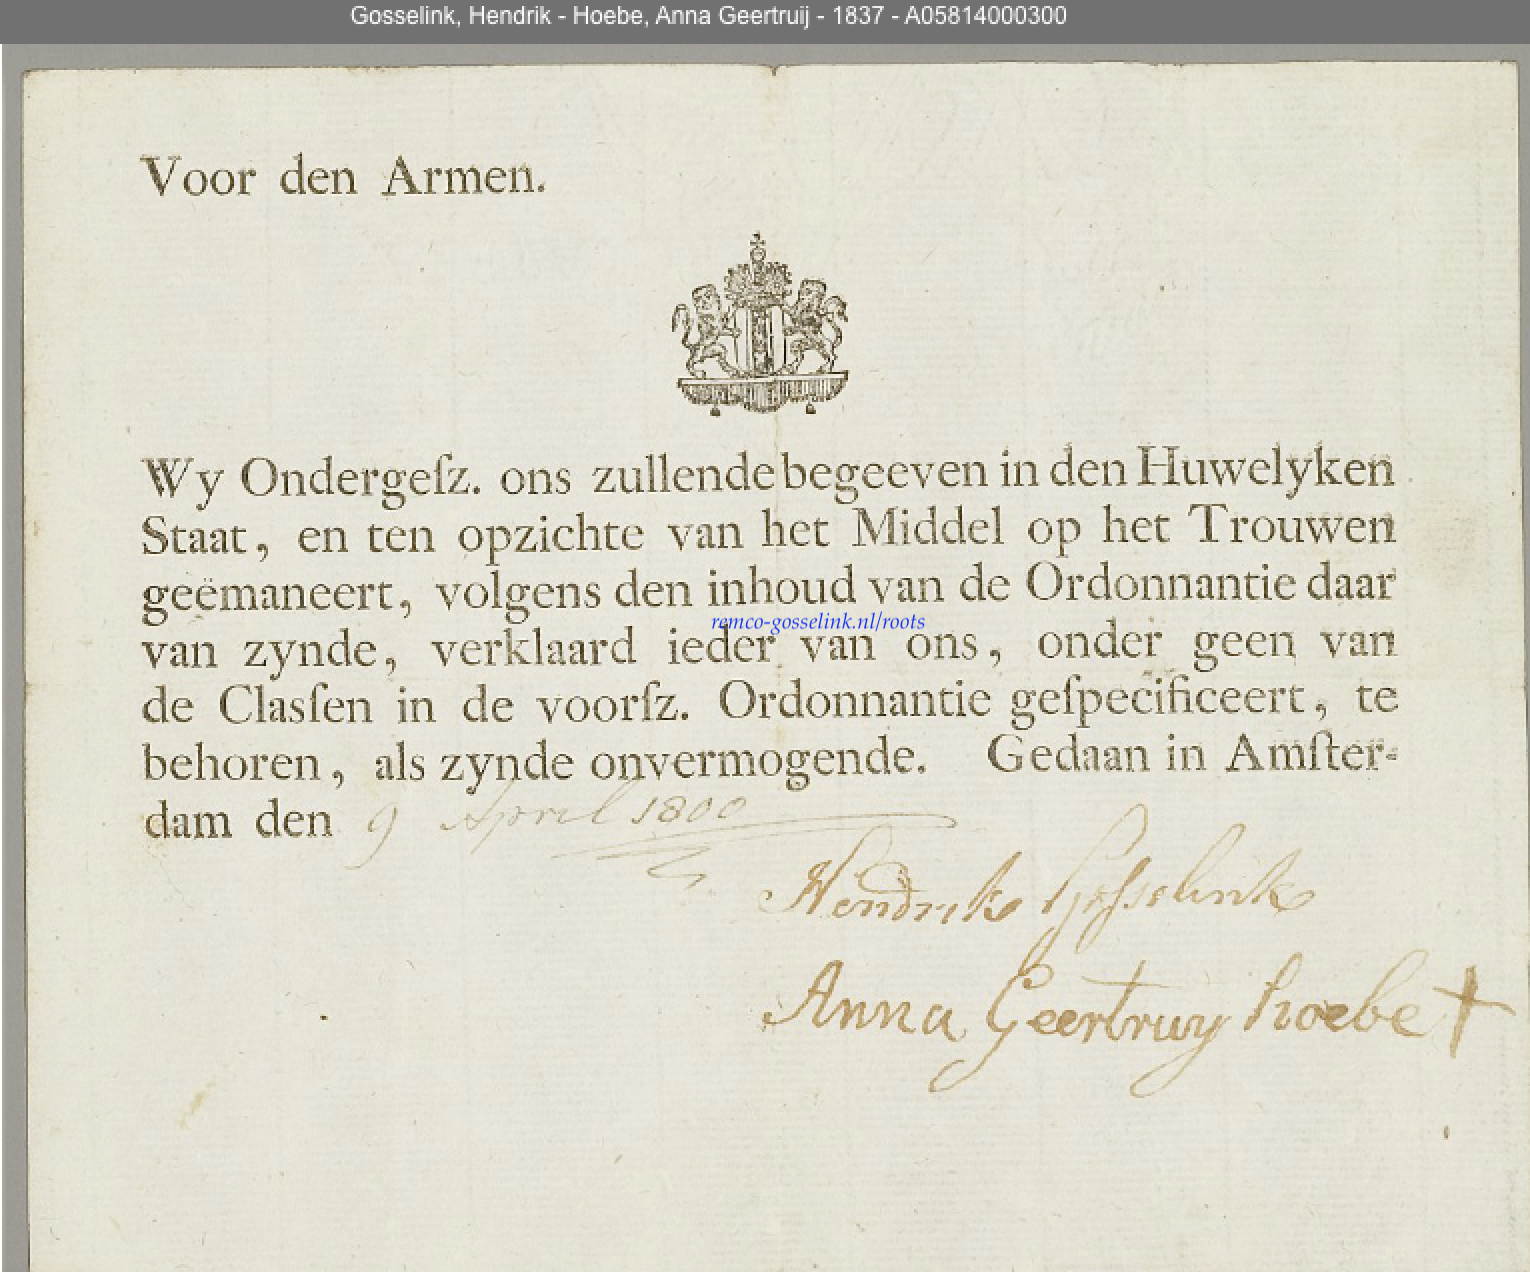 Gosselink, Hendrik - Hoebe, Anna Geertruij - 1837 - A05814000300
Voor den Armen.
Wy Ondergeſz. ons zullende begeeven in den Huwelyken
Staat, en ten opzichte van het Middel op het Trouwen
geëmaneert, volgens den inhoud van de Ordonnantie daar
remco-gosselink.nl/roots
van zynde, verklaard ieder van ons, onder geen van
de Clasſen in de voorſz. Ordonnantie geſpecificeert, te
behoren, als zynde onvermogende. Gedaan in Amſter-
dam den 9 April 1800
Hendrik Gosselink
Anna Geertruy hoebe